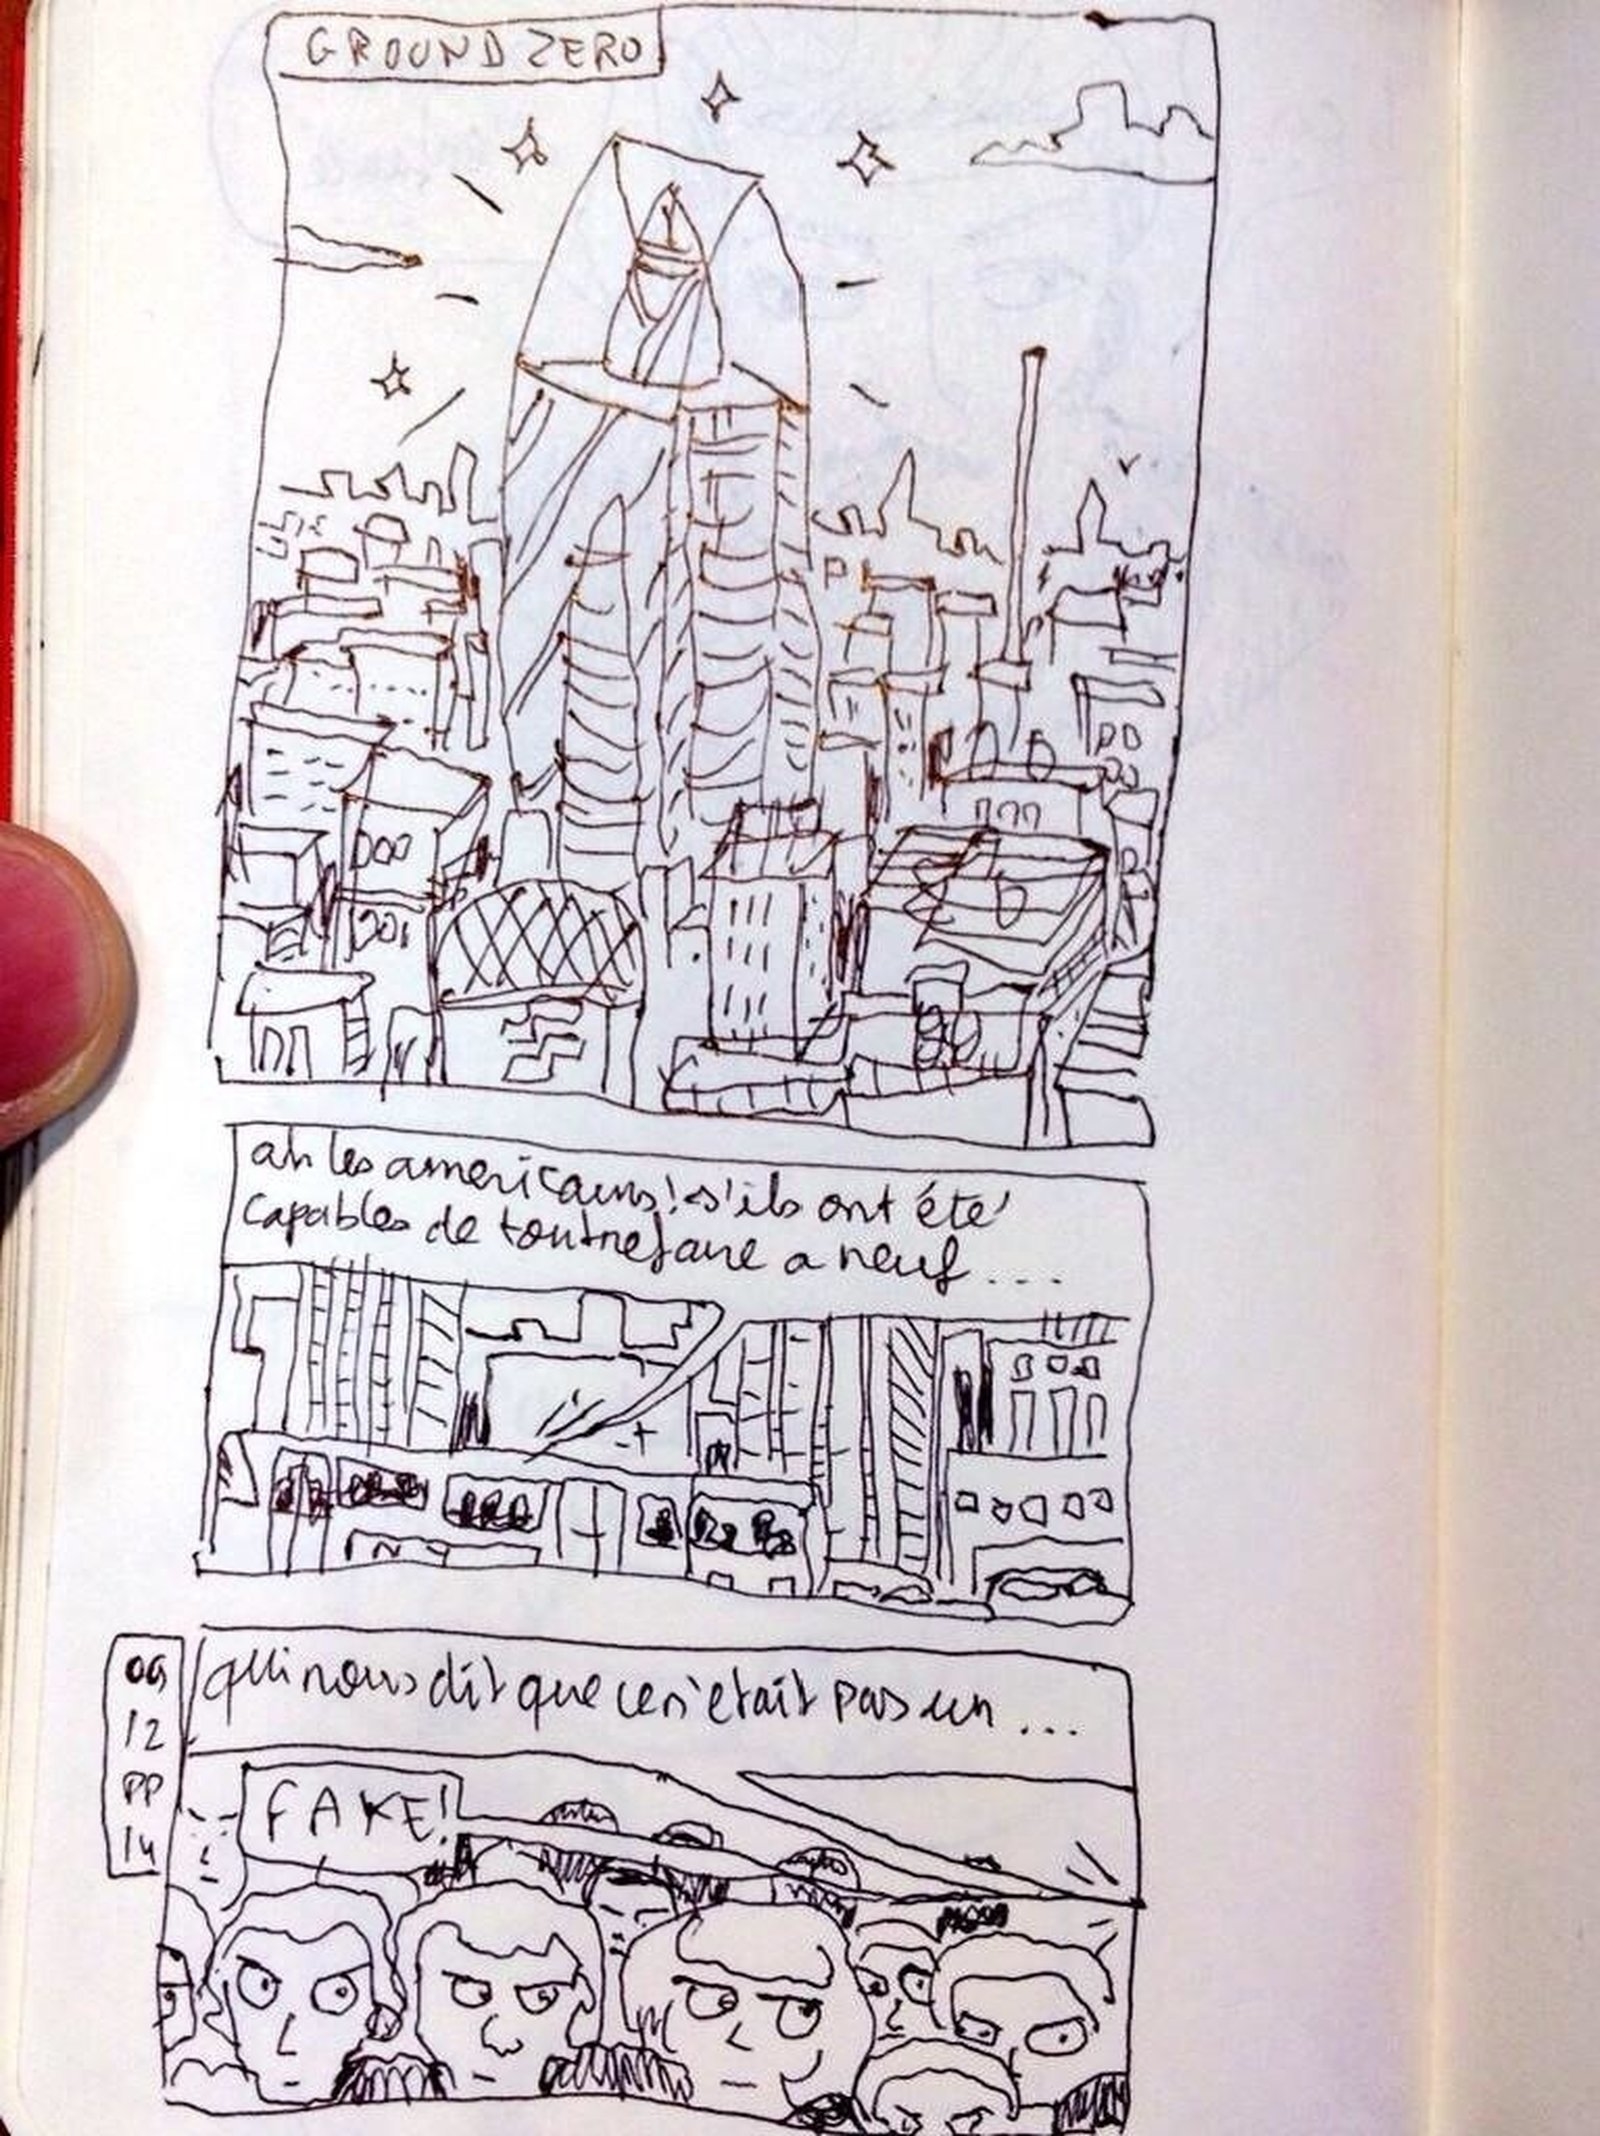 GROUND ZERO
ah les americains! s'ils ont été
capables de tout refaire a neuf....
qui nous dit que ce n'etait pas un ...
09
12
PP
14
FAKE!